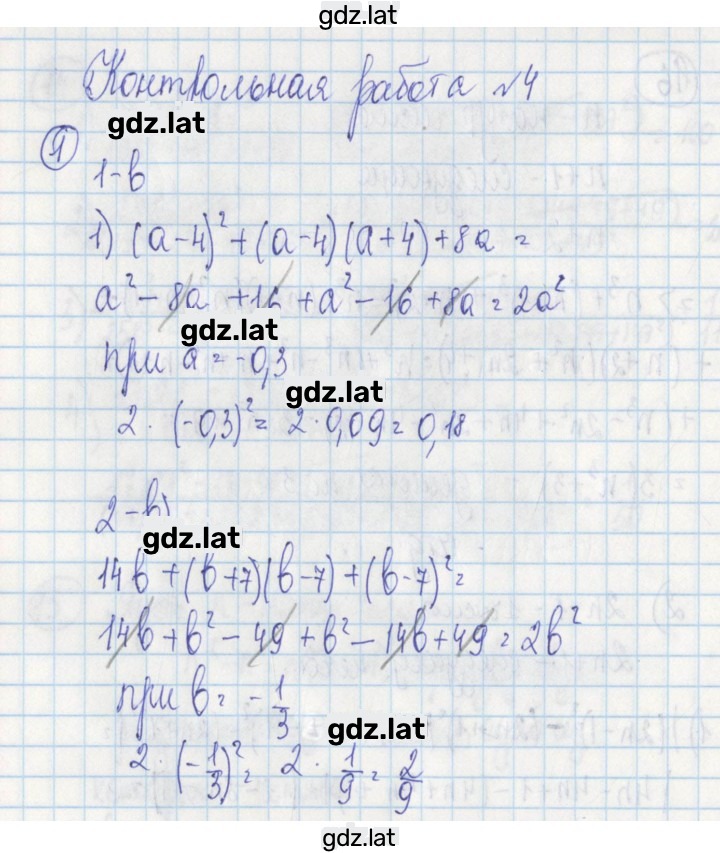 gdz.lat
Контрольная работа №4
gdz.lat
1
1-в
1) (a-4)² + (a-4)(a+4) + 8a =
a² - 8a + 16 + a² - 16 + 8a = 2a²
gdz.lat
при a = -0,3
gdz.lat
2 · (-0,3)² = 2 · 0,09 = 0,18
2-в
gdz.lat
14b + (b+7)(b-7) + (b-7)² =
14b + b² - 49 + b² - 14b + 49 = 2b²
при b = -1/3
gdz.lat
2 · (-1/3)² = 2 · 1/9 = 2/9
gdz.lat